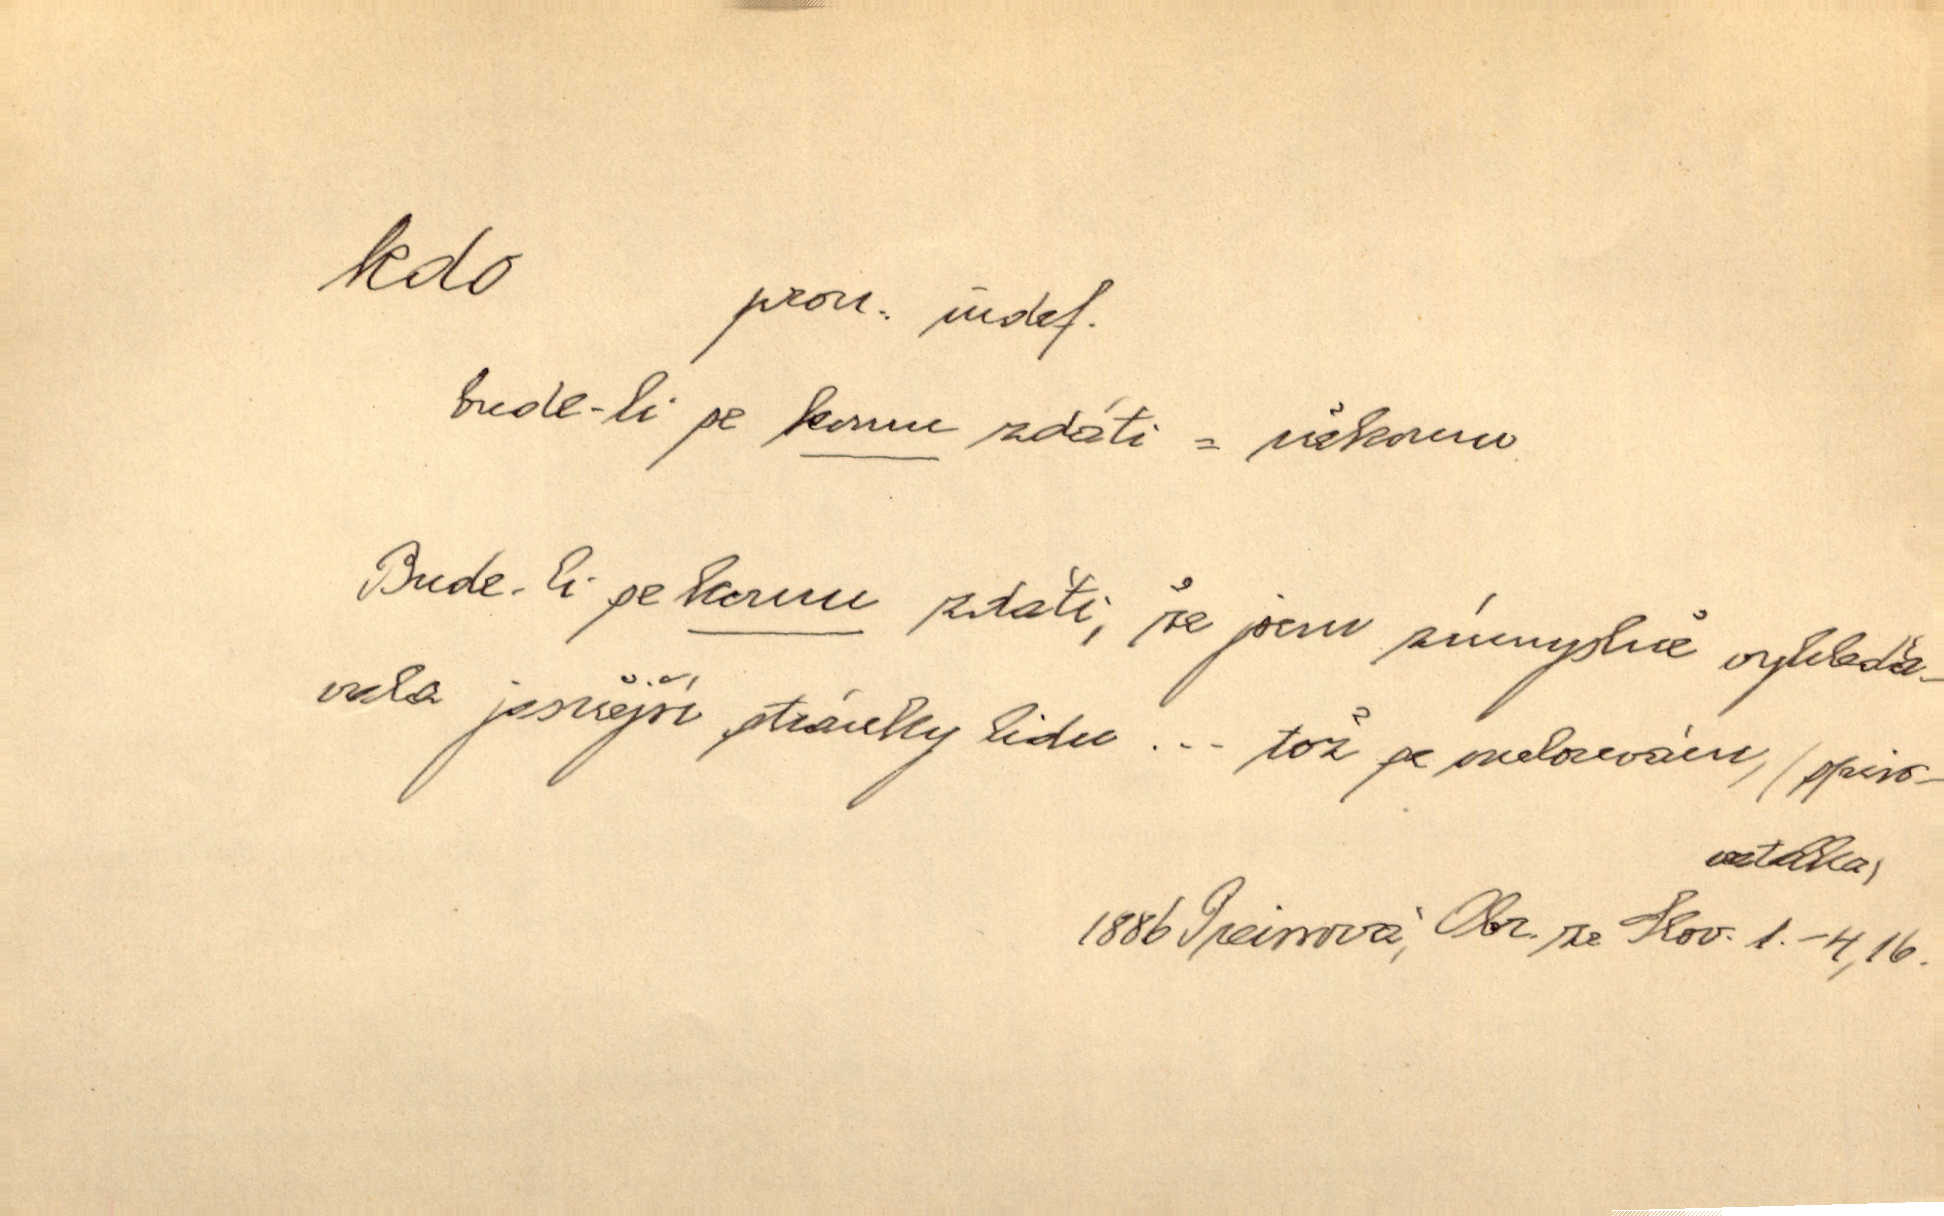 kdo
pron. indef.
bude-li se komu zdáti = někomu
Bude-li se komu zdáti, že jsem zúmyslně vyhledá-
vala jasnější stránky lidu ... tož se nebráním, (spiso-
vatelka)
1886 Preissová, Obr. ze Slov. 1.-4, 16.